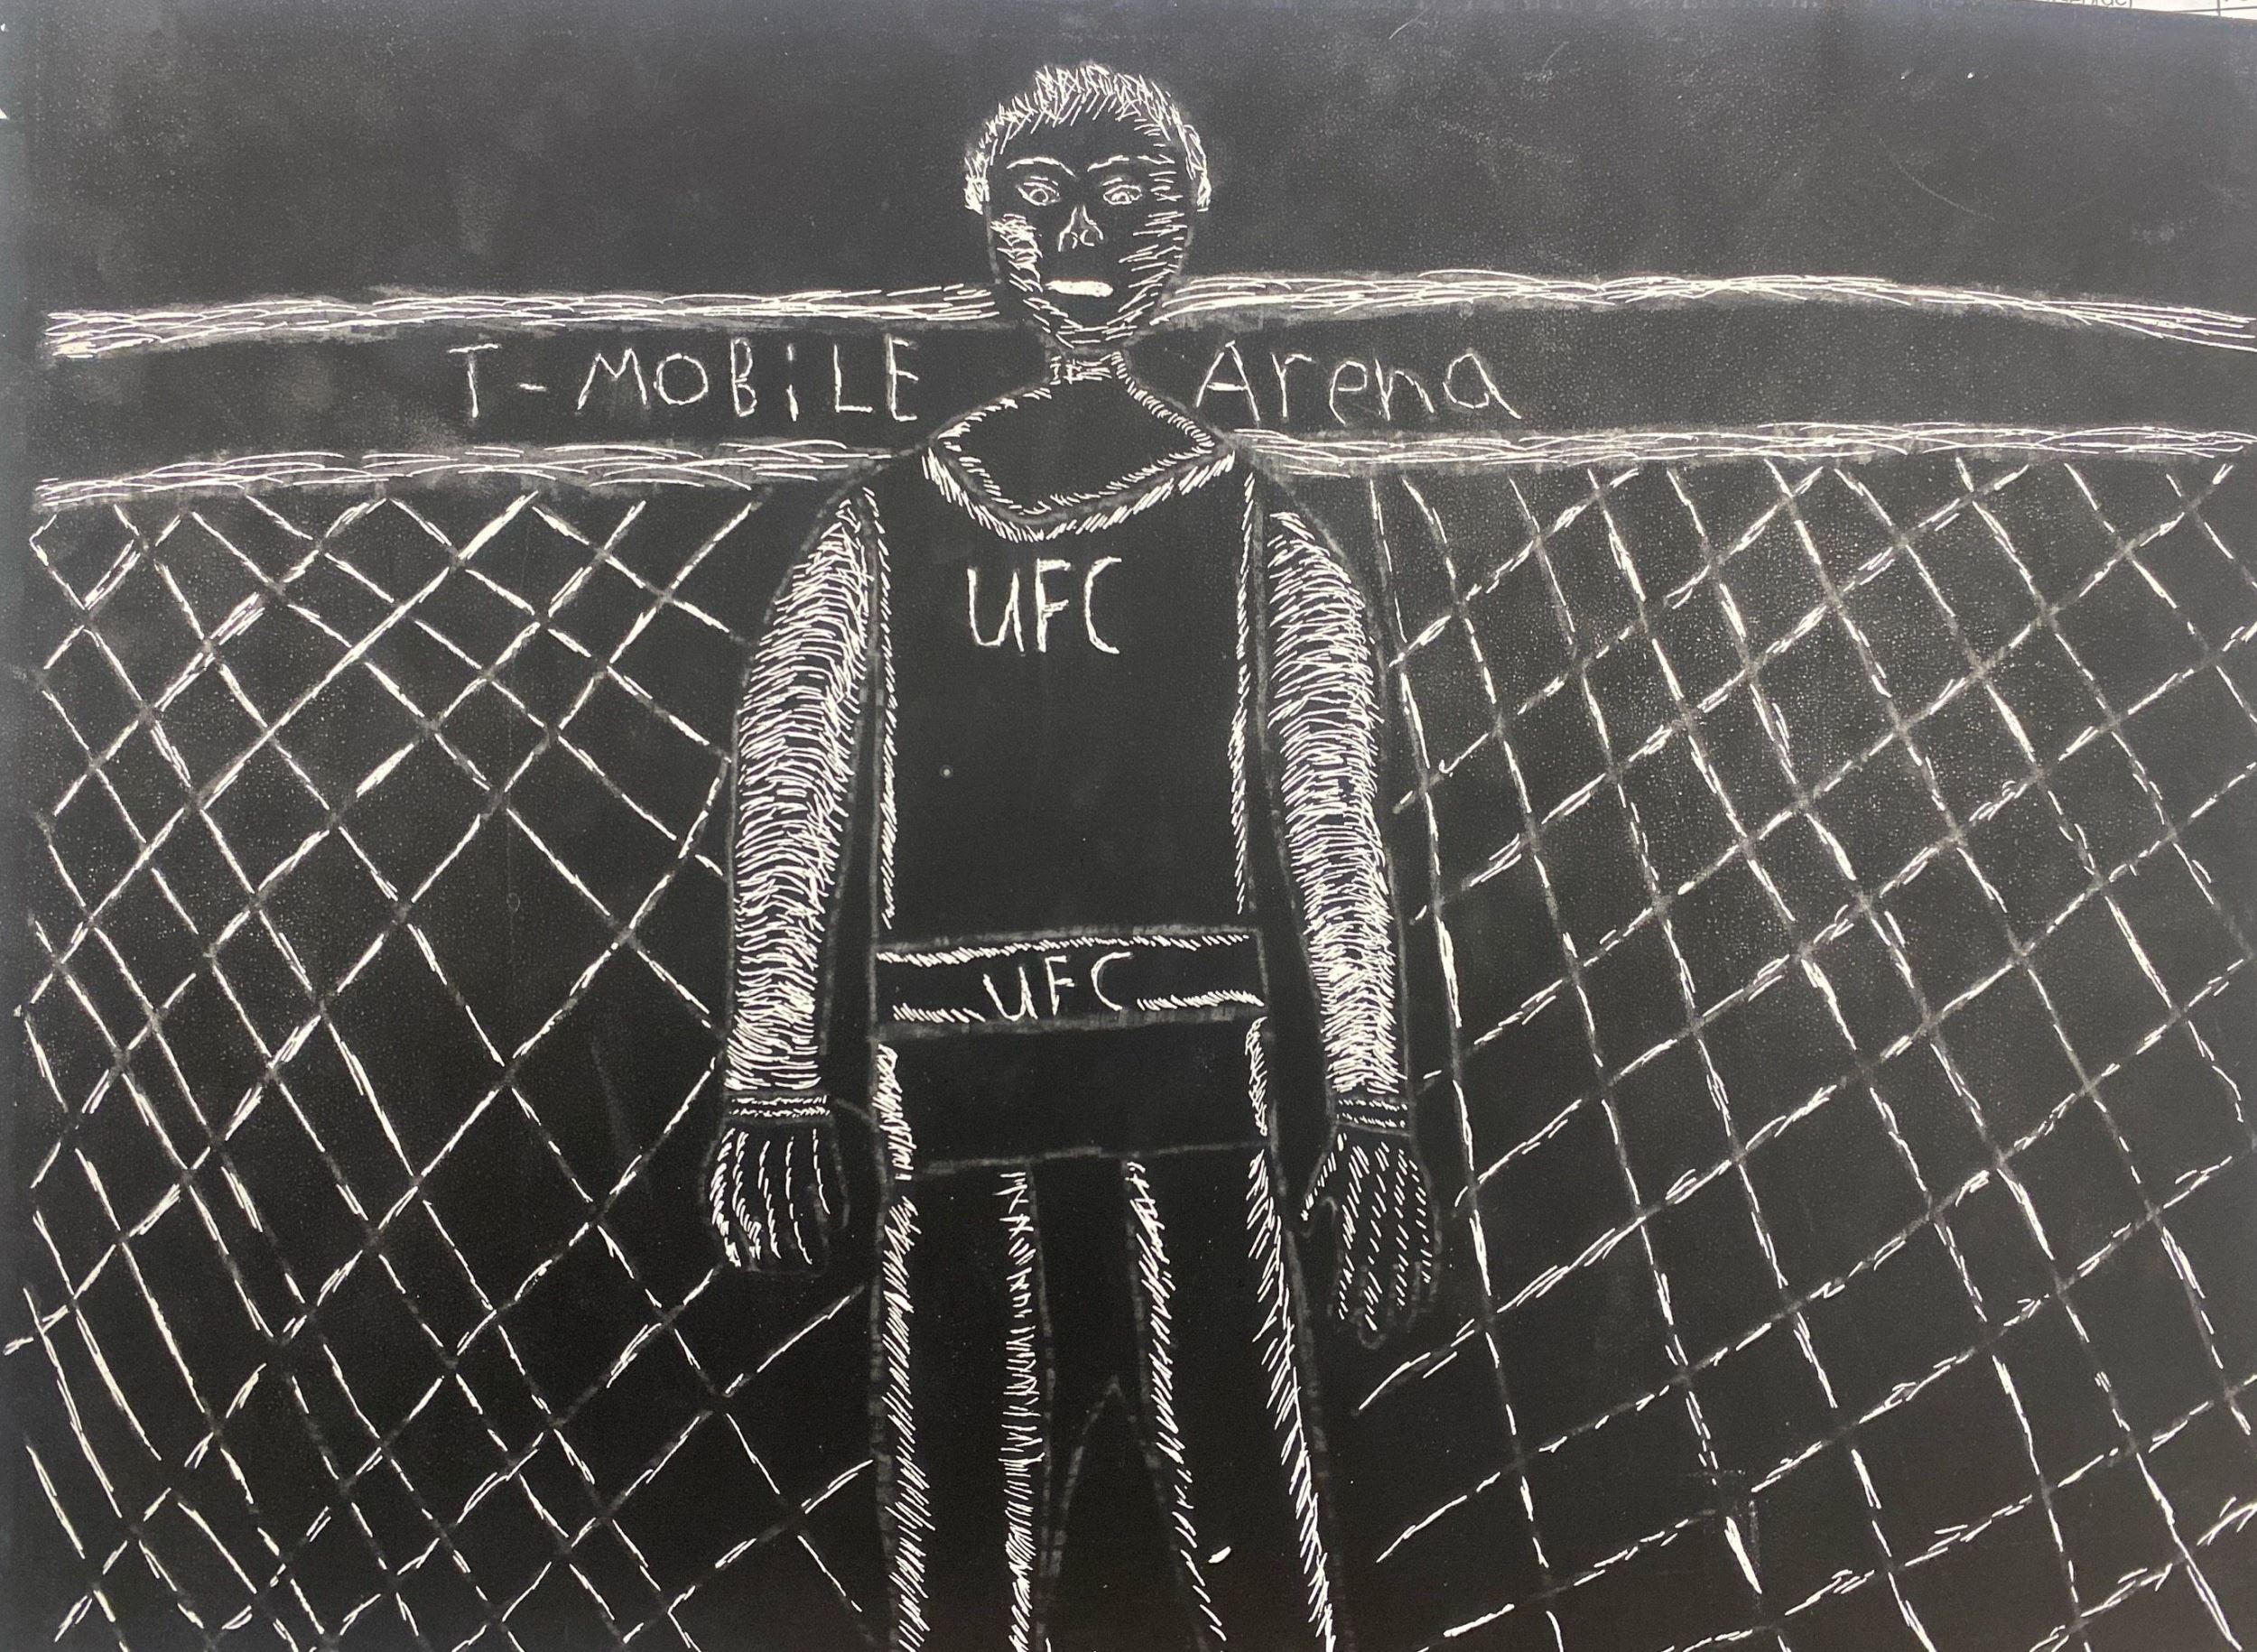 T-MOBiLE Arena
UFC
UFC